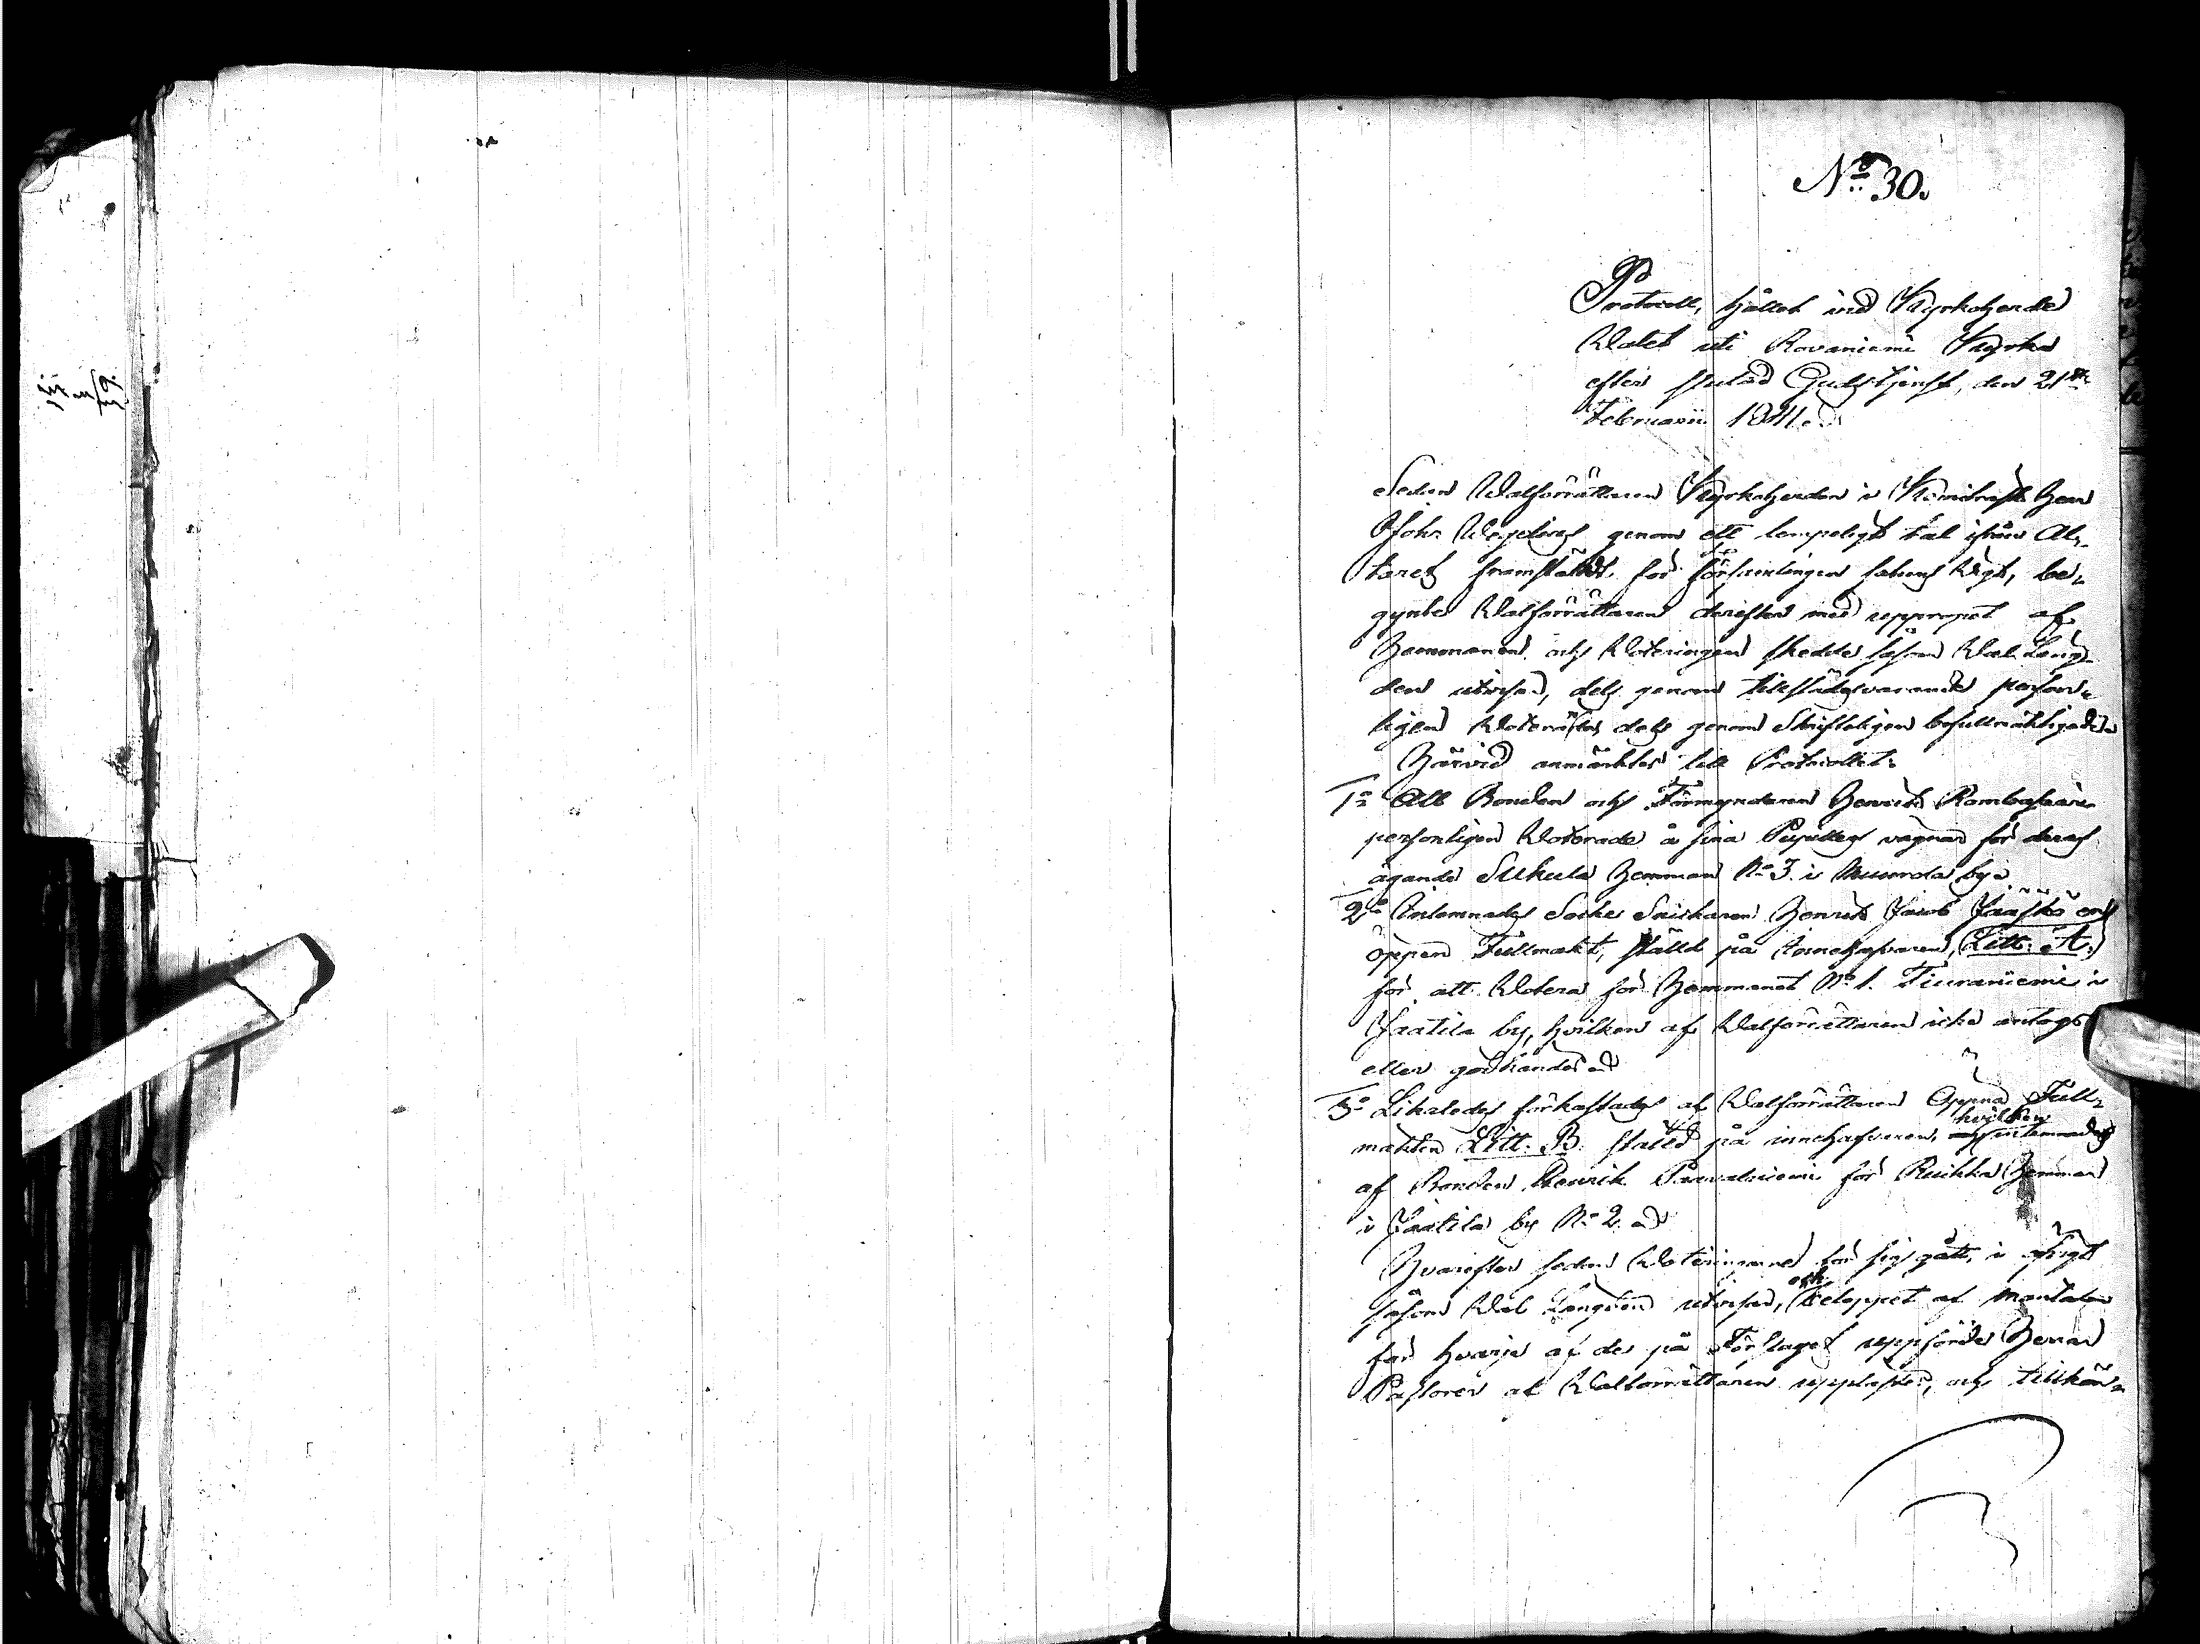 No 30.
Protocoll, hållet vid Kyrkoherde
Walet uti Rovaniemi Kyrka
efter slutad Gudstjenst, den 21ste
Februarii 1841.
Sedan Walförrättaren Kyrkoherden i Kemiträsk Herr
Joh: genom ett lempeligt tal ifrån Al-
taret framställdt för församlingen sakens vigt, be-
gynte Walförrättaren derefter med uppropet af
Hemmanen och Voteringen skedde såsom Wal Läng-
den utvisar, dels genom tillstädesvarande person-
ligen Voterande dels genom Skrifteligen befullmäktigade.
Härvid anmärktes till Protocollet:
1o Att Bonden och Förmyndaren Henrik
personligen Voterade å sina Pupillers vägnar för deras
ägande Sukula Hemman No 3 i Muurola by.
2o Inlemnades Socke Snickaren Henrik Jacob Jääskö en
öppen Fullmakt, ställd på innehafvaren, Litt. A.
för att Votera för Hemmanet No 1. Tiuraniemi i
Jaatila by, hvilken af Walförrättaren icke antogs
eller godkändes.
3o Likaledes förkastades af Walförrättaren Öppna Full-
makten Litt. B. ställd på innehafvaren, hvilken inlemnades
af Bonden Henrik Paavalniemi för Ruikka Hemman
i Jaatila by No 2.
Hvarefter sedan Voteringarne för sig gått, i öfrigt
såsom Wal Längden utvisar, och beloppet af mantalen
för hvarje af de på Förslaget uppförde Herrar
Pastorer af Walförrättaren upplästes, och tillkän-